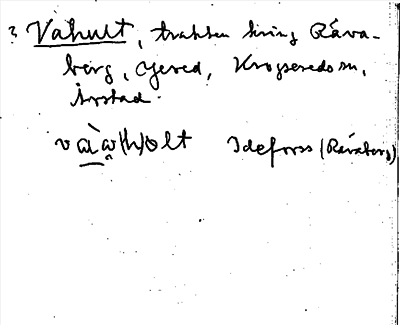 ? Vahult, trakten kring Råva-
berg, Gjered, Krogseredom,
Årstad.
vàw(h)olt Idefors (Råvaberg)